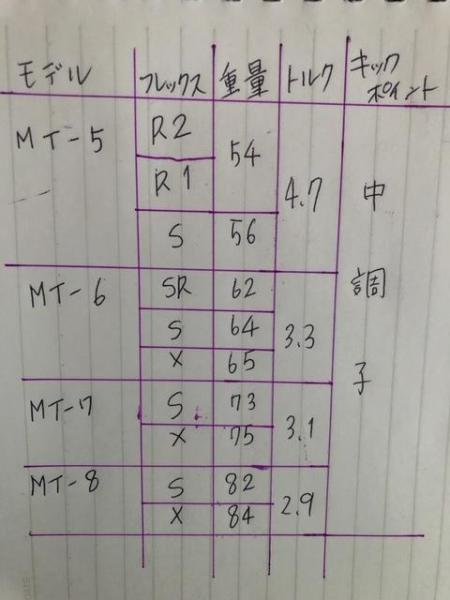 モデル フレックス 重量 トルク キックポイント
MT-5 R2 54 4.7 中調子
R1
S 56
MT-6 SR 62 3.3
S 64
X 65
MT-7 S 73 3.1
X 75
MT-8 S 82 2.9
X 84